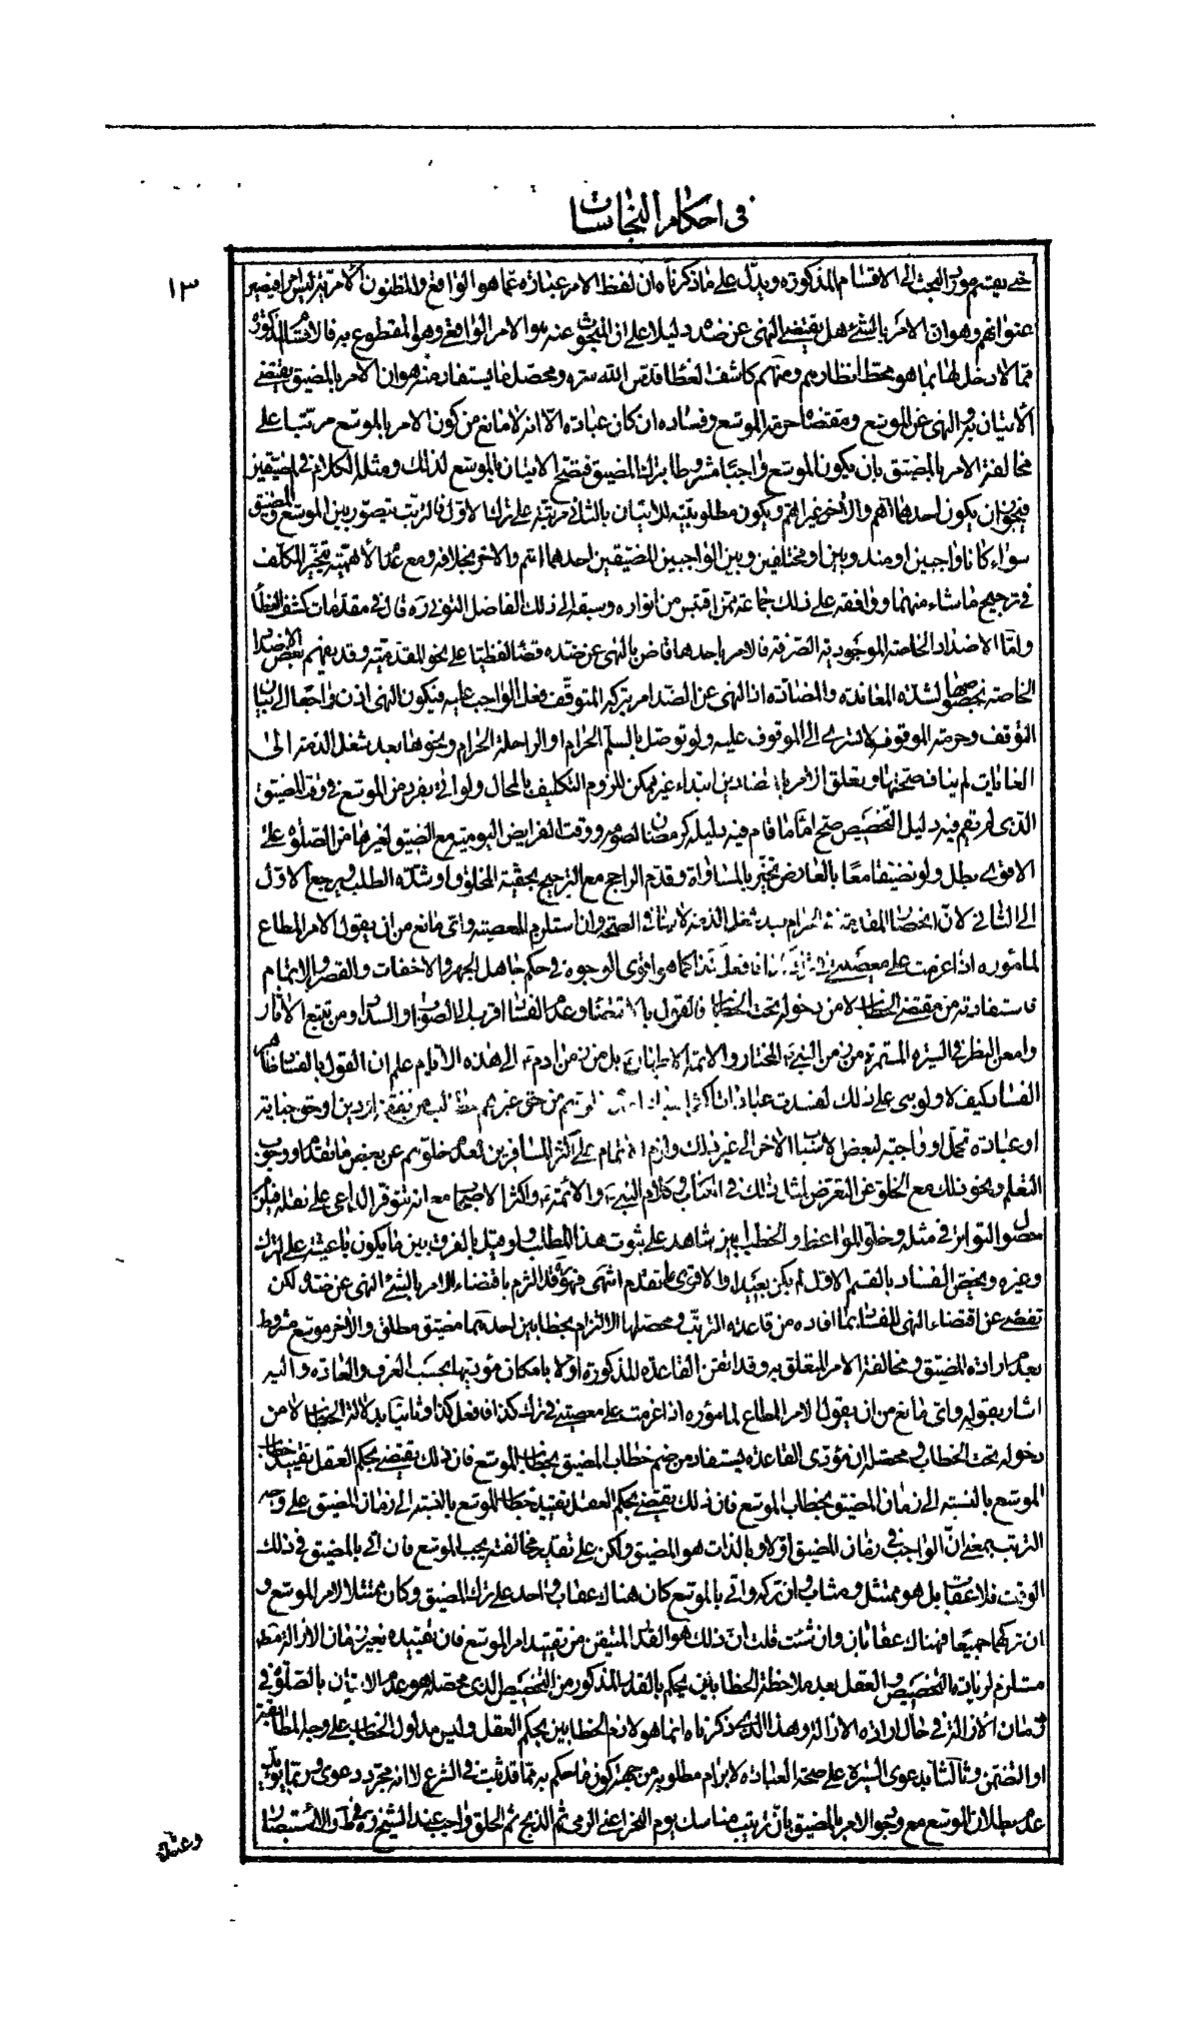 في احكام النجاسات
١٣
حتى يعمّ مورد البحث الى الاقسام المذكورة ويدلّ على ما ذكرناه ان لفظ الامر عبارة عما هو الواقع والمظنون الأمرية ليس امرا فيصير
عنوانهم وهو ان الامر بالشئ هل يقتضى النهى عن ضده دليلا على ان المبحوث عنه هو الامر الواقعى وهو المقطوع به فالاقسام المذكورة
مما لا دخل لها بما هو محطّ انظارهم ومنهم كاشف الغطا قدس الله سره ومحصل ما يستفاد منه هو ان الامر بالمضيق يقتضى
الأتيان به والنهى عن الموسّع ومقتضاه حرمة الموسّع وفساده ان كان عبادة الا انه لا مانع من كون الامر بالموسع مرتبا على
مخالفة الامر بالمضيق بان يكون الموسّع واجبًا مشروطا بترك المضيق فيصحّ الاتيان بالموسع لذلك ومثله الكلام في المضيقين
فيجوز ان يكون احدهما اهم والأخر غير اهم ويكون مطلوبيته للاتيان بالثانى مرتبة على ترك الاوّل فالترتب يتصوّر بين الموسع والمضيق
سواء كانا واجبين او مندوبين او مختلفين وبين الواجبين المضيقين احدهما اهم والاخر بخلافه ومع عدم الأهمية يتخير المكلف
فى ترجيح ما شاء منهما ووافقه على ذلك جماعة ممن اقتبس من انواره وسبقه الى ذلك الفاضل التونى ره قال في مقدمات كشف الغطا
وامّا الاضداد الخاصة الموجودية الصرفة فالامر باحدها قاض بالنهى عن ضده قضا لفظيا على نحو المقدمية وقد يعمهم بعض الاضداد
الخاصة بخصوصها لشدة المعاندة والمضادة اذ النهى عن الضد امر بتركه المتوقف فعل الواجب عليه فيكون النهى اذن راجعا الى بيان
التوقف وحرمة الموقوف لا تسرى الى الموقوف عليه ولو توصل بالسلّم الحرام او الراحلة الحرام ونحوها بعد شغل الذمة الى
الغايات لم يناف صحتها وتعلق الأمر بالمتضادين ابتداء غير ممكن للزوم التكليف بالمحال ولو اتى بفرد من الموسّع فى وقت المضيق
الذى لم يقم فيه دليل التخصيص صحّ امّا ما قام فيه دليله كرمضان لصومه ووقت الفرايض اليومية مع الضيق لغيرها من الصلوة على
الاقوى بطل ولو تضيقا معًا بالعارض تخيّر بالمساواة وقدم الراجح مع الترجيح بحقية المخلوق او شدّة الطلب ويرجع الاوّل
الى الثانى لانّ انحصار المقدمة فى الحرام بعد شغل الذمة لا ينافى الصحة وان استلزم المعصية واى مانع من ان يقول الامر المطاع
لمأموره اذا عزمت على معصيتى فى ترك كذا فافعل كذا كما هو اقوى الوجوه فى حكم جاهل الجهر والاخفات والقصر والاتمام
فاستفادته من مقتضى الخطاب لا من دخوله تحت الخطاب فالقول بالاقتضاء وعدم الفساد اقرب الى الصواب والسداد ومن تتبع الاثار
وامعن النظر فى السيرة المستمرة من زمن النبى المختار والائمة الاطهار بل من زمن ادم الى هذه الايام علم ان القول بالفساد ظاهر
الفساد كيف لا ولو بنى على ذلك لفسدت عبادات
او عبادة تحمل او واجبة لبعض الاسباب الأخر الى غير ذلك ولزم الاتمام على اكثر المسافرين لعدم خلوّهم عن بعض ما تقدم او وجوب
التعلم ونحو ذلك مع الخلو عن التعرض لمثل ذلك فى الكتاب وكلام النبى والائمة واكثر الاصحاب مع انه تتوفر الدواعى على نقله فيكون
حصول التواتر فى مثله وخلو المواعظ والخطب ابين شاهد على ثبوت هذا المطلب ولو قيل بالفرق بين ما يكون باعثه على الترك
وغيره ويخص الفساد بالقسم الاوّل لم يكن بعيدا والاقوى ما تقدم انتهى فهو ره قد التزم باقتضاء الامر بالشئ النهى عن ضده ولكن
تفصّى عن اقتضاء النهى للفساد بما افاده من قاعدة الترتب ومحصلها الالتزام بخطابين احدهما مضيق مطلق والأخر موسع مشروط
بعدم ارادة المضيق ومخالفة الامر المتعلق به وقد اتقن القاعدة المذكورة اوّلا بامكان مؤديها بحسب العرف والعادة واليه
اشار بقوله واى مانع من ان يقول الامر المطاع لمأموره اذا عزمت على معصيتى فى ترك كذا فافعل كذا وثانيا بدلالة الخطاب لا من
دخوله تحت الخطاب ومحصله ان مؤدى القاعدة يستفاد من ضم خطاب المضيق بخطاب الموسع فان ذلك يقتضى بحكم العقل تقييد خطاب
الموسّع بالنسبة الى زمان المضيق بخطاب الموسع فان ذلك يقتضى بحكم العقل تقييد خطاب الموسع بالنسبة الى زمان المضيق على وجه
الترتب بمعنى انّ الواجب فى زمان المضيق اوّلا وبالذات هو المضيق ولكن على تقدير مخالفته يجب الموسع فان اتى بالمضيق فى ذلك
الوقت فلا عقاب بل هو ممتثل ومثاب وان تركه واتى بالموسع كان هناك عقاب واحد على ترك المضيق وكان ممتثلا لامر الموسع و
ان تركهما جميعًا فهناك عقابان وان شئت قلت انّ ذلك هو القدر المتيقن من تقييد امر الموسع فان تقييده بغير زمان الازالة مطلقا
مستلزم لزيادة التخصيص والعقل بعد ملاحظة الخطابين يحكم بالقدر المذكور من التخصيص الذى محصله هو عدم الاتيان بالصلوة فى
زمان الازالة فى حال ارادة الازالة وهذا الذى ذكرناه انما هو لازم الخطابين بحكم العقل وليس مدلول الخطاب على وجه المطابقة
او التضمن وثالثا بدعوى السيرة على صحة العبادة لابرام مطلوبه من جهة كون ما حكم به مما قد ثبت فى الشرع لا انه مجرد دعوى وربما يؤيد
عدم بطلان الموسع مع وجود الامر بالمضيق بانّ ترتيب مناسك يوم النحر اعنى الرمى ثم الذبح ثم الحلق واجب عند الشيخ ره فى ط والاستبصار